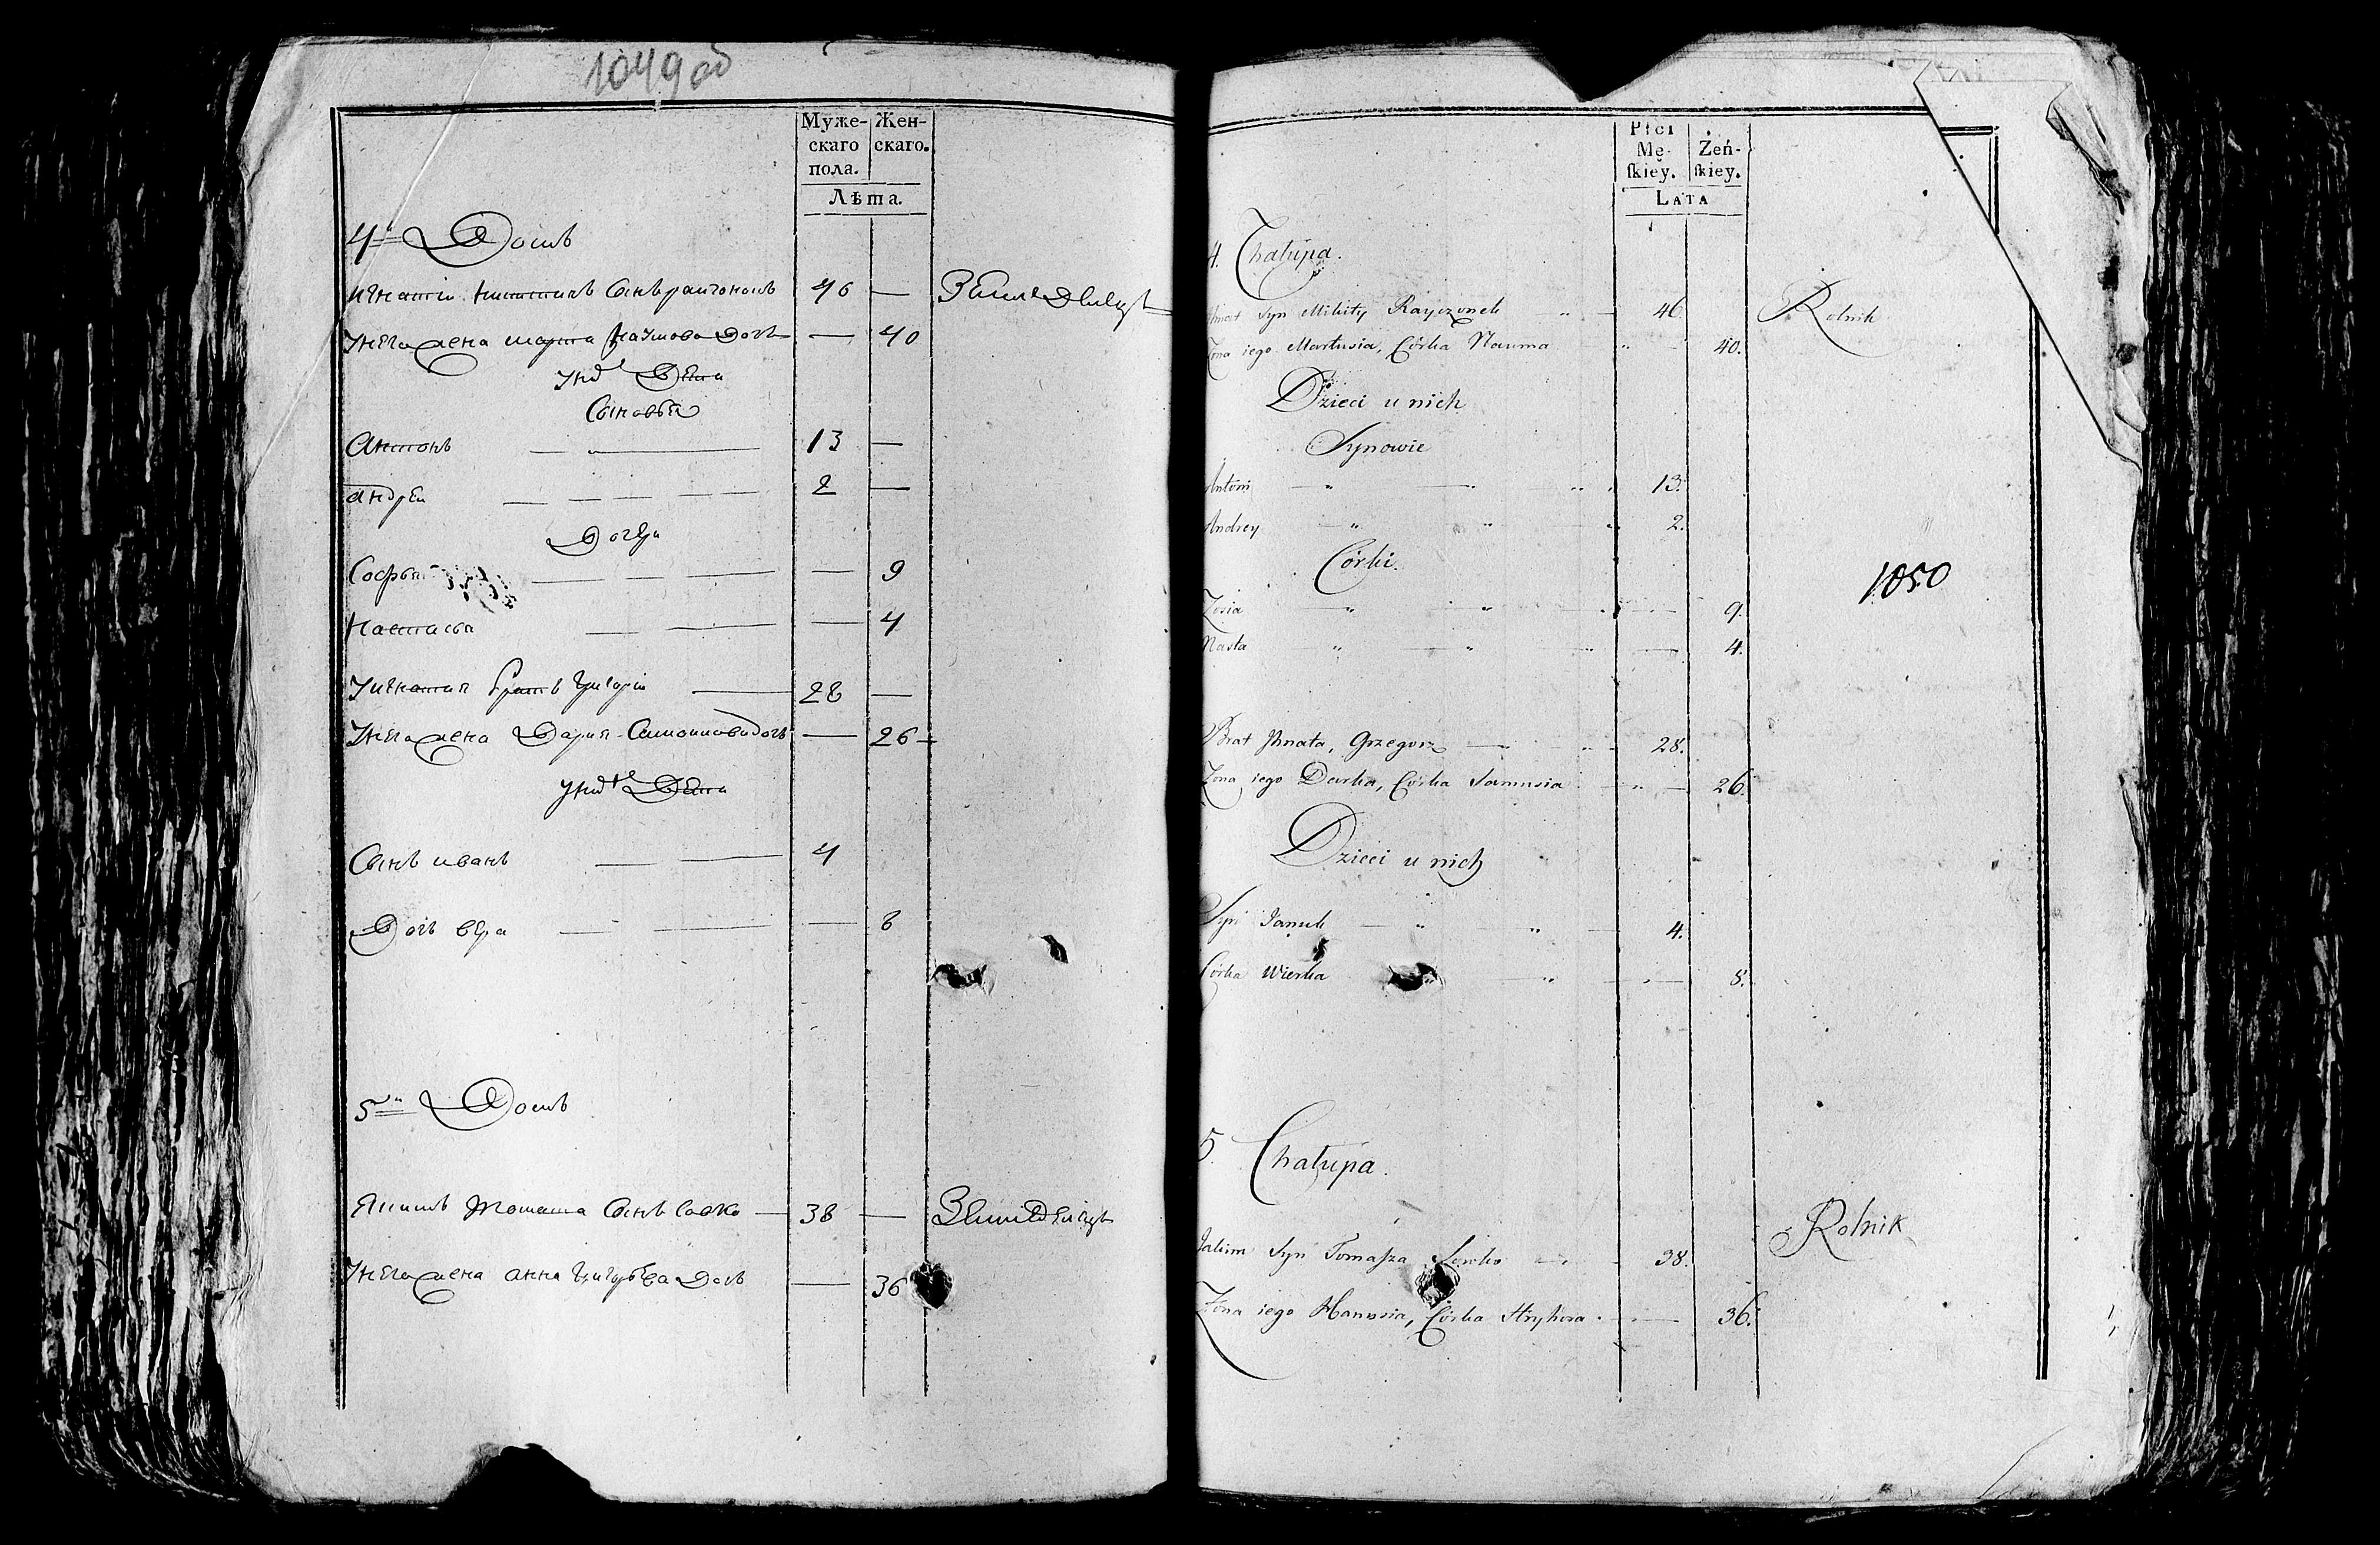 1049 об
Муже- Жен-
скаго скаго.
пола.
Лѣта.
4й Домъ
Игнатій Никитинъ Сынъ Райчонокъ 46 — Земледѣлецъ
У него жена Марта Наумова дочь — 40
У них Дѣти
Сыновья
Антонъ — 13 —
Андрей — 2 —
Дочери
Софья — 9
Настасья — 4
У Игнатия братъ Григорій — 28 —
У него жена Дарья Самойлова дочь — 26
У них Дѣти
Сынъ Иванъ — 4
Дочь Вера — 8
5й Домъ
Якимъ Томаша Сынъ Савко — 38 — Земледѣлецъ
У него жена Анна Григорьева Дочь — 36
Płci
Mę- Żeń-
ſkiey. ſkiey.
LATA
4. Chałupa.
Ihnat Syn Mikity Rayczonek — 46. Rolnik
Żona iego Martusia, Córka Nauma — 40.
Dzieci u nich
Synowie
Antoni " " " 13.
Andrey " " " 2.
Córki.
Zosia " " " 9.
Nasta " " " 4.
1050
Brat Ihnata, Grzegorz — 28.
Żona iego Darka, Córka Samusia — 26.
Dzieci u nich
Syn Januk — " " 4.
Córka Wierka " " 8.
5. Chałupa.
Jakim Syn Tomaſza Sawko — 38. Rolnik
Żona iego Hanusia, Córka Hryhora — 36.